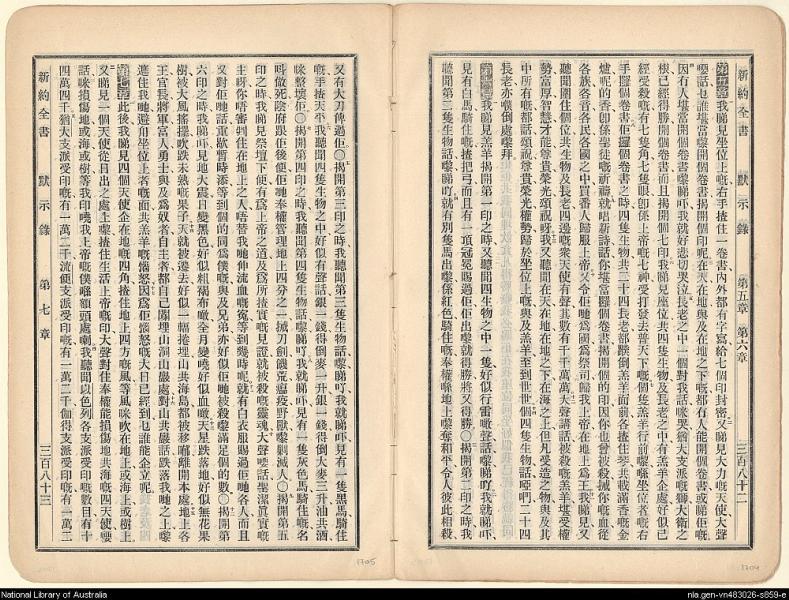 新約全書 默示錄 第五章 第六章 三百八十二
第五章 我睇見坐位上嘅右手揸住一卷書內外都有字寫給七個印封密又睇見大力嘅天使大聲
話乜誰堪當嚟開個卷書揭開個印呢在天在地與及在地之下嘅都有人能開個卷書或睇佢嘅
因冇人堪當開個卷書嚟睇吓我就好悲切哭泣長老之中一個對我話咪哭猶大支派嘅獅大衛之
根已經得勝開個卷書而且揭開個七印我睇見座位共四隻生物及長老之中有羔羊企處好似已
經受殺嘅有七隻角七隻眼卽係上帝嘅七神受打發去普天下嘅個隻羔羊行前嚟喺坐位者嘅右
手攞個卷書佢攞個卷書之時四隻生物共二十四長老都𢫏倒羔羊面前各揸住琴共載滿香嘅金
爐呢的香卽係聖徒嘅祈禱就唱新詩話你堪當攞個卷書揭開個的印因你也曾被殺掟你嘅血從
各族各音各民各國之中買番人歸服上帝又令佢哋爲國爲祭司歸我上帝在地上爲王我睇見又
聽聞圍住個位共生物及長老四邊嘅衆天使有聲其數有千千萬萬大聲講話被殺嘅羔羊堪受權
勢富厚智慧才能尊貴榮光頌祝呀我又聽聞在天在地在地之下在海之上但凡受造之物與及其
中所有嘅都話頌祝尊貴榮光權勢歸於坐位上嘅與及羔羊至到世世個四隻生物話啞們二十四
長老亦𢫏倒處嚟拜
第六章 我睇見羔羊揭開第一印之時又聽聞四生物之中一隻好似行雷噉聲話嚟睇吖我就睇吓
見有白馬騎住嘅揸把弓而且有一頂冠冕賜過佢佢出嚟就得勝將又得勝〇揭開第二印之時我
聽聞第二隻生物話嚟睇吖就有別隻馬出嚟係紅色騎住嘅奉權喺地上嚟奪和平令人彼此相殺
又有大刀俾過佢〇揭開第三印之時我聽聞第三隻生物話嚟睇吖我就睇吓見有一隻黑馬騎住
嘅手揸天平我聽聞四隻生物之中好似有聲話銀一錢得倒麥一升銀一錢得倒大麥三升油共酒
咪整壞佢〇揭開第四印之時我聽聞第四隻生物話嚟睇吖我就睇吓見有一隻灰色馬騎住嘅名
叫做死陰府跟佢後便佢哋奉權管理地上四分之一掟刀劍饑荒瘟疫野獸嚟剿滅人〇揭開第五
印之時我睇見祭壇下便有爲上帝之道及爲所揸實嘅見證就被殺嘅靈魂大聲噉話聖潔眞實嘅
主呀你唔審判住在地上之人唔替我哋伸流血嘅冤等到幾時呢就有白衣服賜過佢哋各人而且
又對佢哋話重歇暫時添等到個的同爲僕嘅與及兄弟亦好似佢哋被殺嚟滿足個的數〇揭開第
六印之時我睇吓見地大震日變黑色好似粗褐布噉全月變曉好似血噉天星跌落地好似無花果
樹被大風搖擺吹跌未熟嘅果子天就被遷去好似一幅捲埋山共海島都被移嚹離開本處地上各
王官長將軍富人勇士與及爲奴者自主者都自己匿埋山洞山巖處對山共巖話跌落我哋之上嚟
遮住我哋避向坐位上者嘅面共羔羊嘅惱怒因爲佢惱怒嘅大日已經到乜誰能企立呢
第七章 此後我睇見四個天使企在地嘅四角揸住地上四方嘅風等風咪吹在地上或海上或樹上
又睇見一個天使從日出之處上嚟揸住生活上帝嘅印大聲對住奉權能損傷地共海嘅四天使噉
話咪損傷地或海或樹等我印曉我上帝嘅僕喺額頭處喇我聽聞以色列各支派受印嘅數目有十
四萬四千猶大支派受印嘅有一萬二千流便支派受印嘅有一萬二千伽得支派受印嘅有一萬二
新約全書 默示錄 第七章 三百八十三
1704
1705
National Library of Australia
nla.gen-vn483026-s859-e